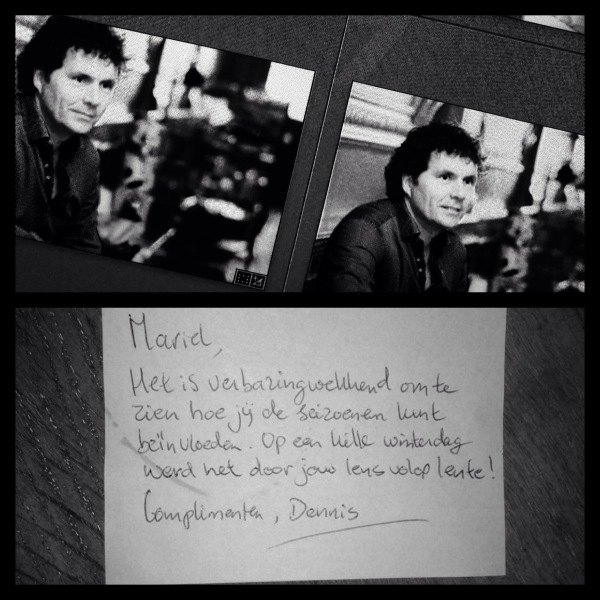 Mariel,
Het is verbazingwekkend om te
zien hoe jij de seizoenen kunt
beïnvloeden. Op een kille winterdag
werd het door jouw lens volop lente!
Complimenten, Dennis